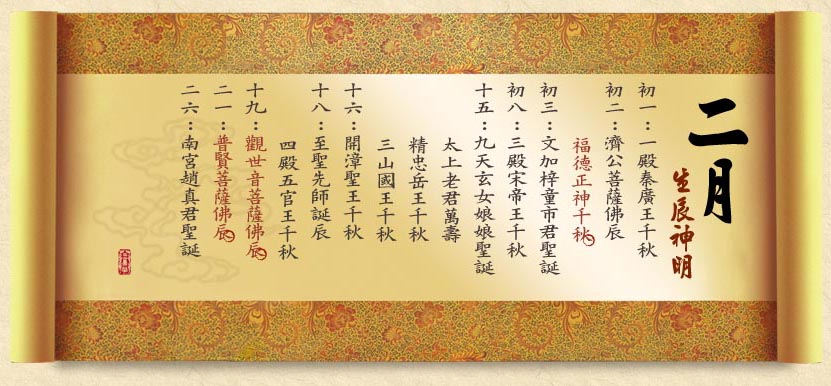 二月
生辰神明
初一：一殿秦廣王千秋
初二：濟公菩薩佛辰
福德正神千秋
初三：文加梓童市君聖誕
初八：三殿宋帝王千秋
十五：九天玄女娘娘聖誕
太上老君萬壽
精忠岳王千秋
三山國王千秋
十六：開漳聖王千秋
十八：至聖先師誕辰
四殿五官王千秋
十九：觀世音菩薩佛辰
二一：普賢菩薩佛辰
二六：南宮趙真君聖誕